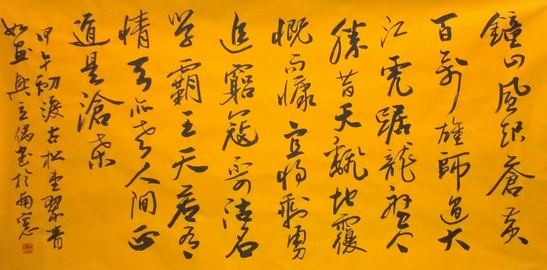 鐘山風起蒼黄
百萬雄師過大
江虎踞龍盤今
勝昔天翻地覆
慨而慷宜將剩勇
追窮寇不可沽名
學霸王天若有
情天亦老人間正
道是滄桑
甲午初渡古松翠青
如画興至偶書於南窓